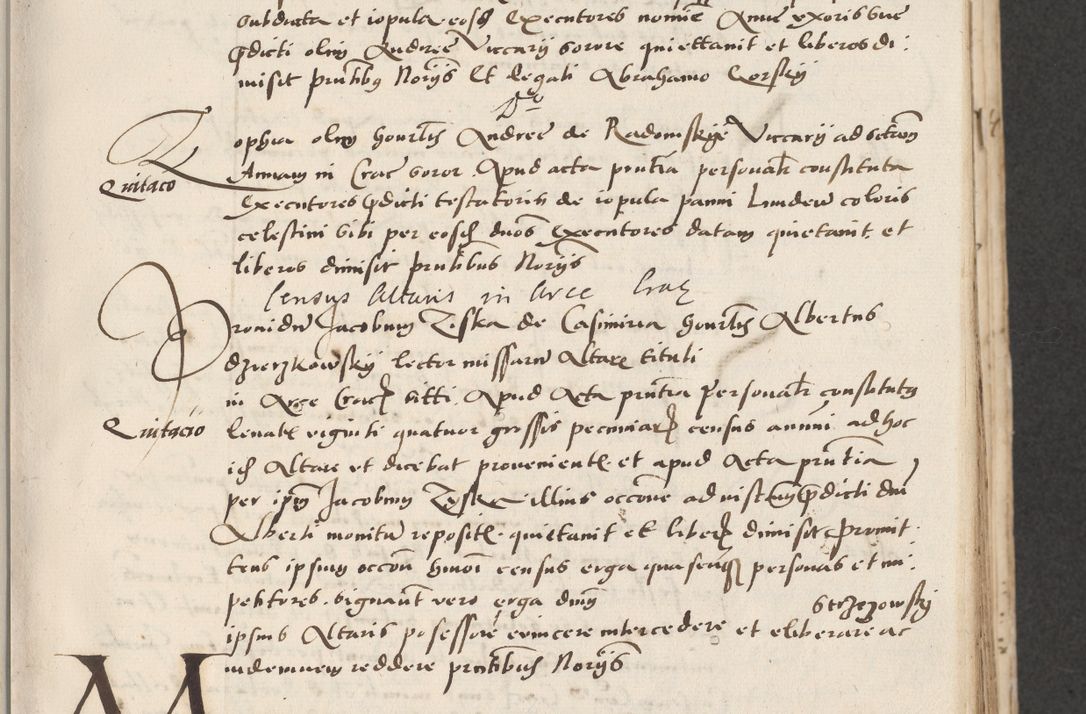 subducta et iopula eosdem Executores nomine Anne uxoris sue
predicti olim Andree Viccarij sorore quiettavit et liberos di:
misit presentibus Notarijs Et legali Abrahamo Gorskij
Quitacio
Sophia olim honestis Andree de Radomskije Viccarij ad sanctam
Annam in Crac soror Apud acta presentia personaliter constituta
Executores predicti testatoris de iopula panni Lundew coloris
celestini sibi per eosdem duos Executores datam quietavit et
liberos dimisit presentibus Notarijs
Census Altaris in Arce Crac
Providum Jacobum Ziska de Casimiria honestis Albertus
dzierzkowskij lector missarum Altare tituli
in Arce Crac siti. Apud Acta presentia Personaliter constitutus
Quitacio
levate viginti quatuor grossis pecuniarum census annui ad hoc
idem Altare ut dicebat proveniente et apud Acta presentia
per ipsum Jacobum Zyska illius occasione ad instantiam predicti domini
Alberti monitum reposite quietavit et liberum dimisit promit:
tens ipsum occasione huiusmodi census erga quascunque personas et im:
petitores. signanter vero erga dominum Strzezowskij
ipsius Altaris possessorem evincere intercedere et eliberare ac
indemnem reddere presentibus Notarijs
M